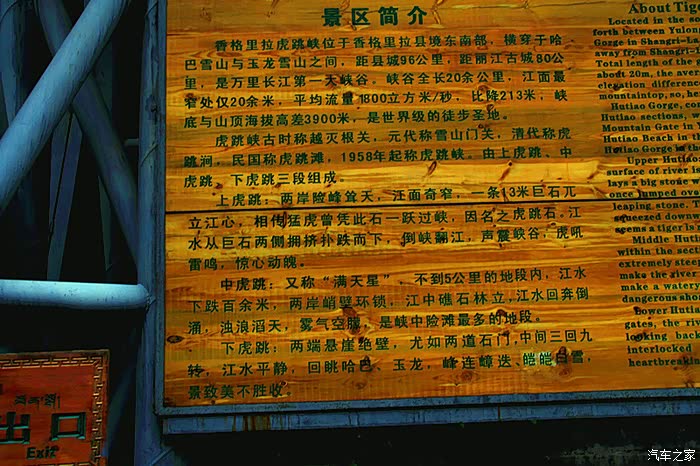 景区简介
香格里拉虎跳峡位于香格里拉县境东南部，横穿于哈
巴雪山与玉龙雪山之间，距县城96公里，距丽江古城80公
里，是万里长江第一大峡谷，峡谷全长20余公里，江面最
窄处仅20余米，平均流量1800立方米/秒，比降213米，峡
底与山顶海拔高差3900米，是世界级的徒步圣地。
虎跳峡古时称越灭根关，元代称雪山门关，清代称虎
跳涧，民国称虎跳滩，1958年起称虎跳峡。由上虎跳、中
虎跳、下虎跳三段组成。
上虎跳：两岸险峰耸天，江面奇窄，一条13米巨石兀
立江心，相传猛虎曾凭此石一跃过峡，因名之虎跳石。江
水从巨石两侧拥挤扑跌而下，倒峡翻江，声震峡谷，虎吼
雷鸣，惊心动魄。
中虎跳：又称“满天星”，不到5公里的地段内，江水
下跌百余米，两岸峭壁环锁，江中礁石林立，江水回奔倒
涌，浊浪滔天，雾气空朦，是峡中险滩最多的地段。
下虎跳：两端悬崖绝壁，尤如两道石门，中间三回九
转，江水平静，回眺哈巴、玉龙，峰连嶂迭、皑皑白雪，
景致美不胜收。
About Tige
Located in the
forth between Yulong
Gorge in Shangri-La
away from Shangri-La
Total length of the
about 20m, the aver
elevation difference
mountaintop, so, he
Hutiao Gorge, co
Hutiao sections,
Mountain Gate in
Hutiao Beach in
Hutiao Gorge in
Gorge is the
Upper Hutiao
surface of river is
lays a big stone w
once jumped ove
leaping stone. T
squeezed down
seems a tiger in
Middle Hut
within the sect
extremely steep
make the river
make a watery
dangerous sho
Lower Hutia
gates, the ri
looking back
interlocked
heartbreaking
出口
Exit
汽车之家